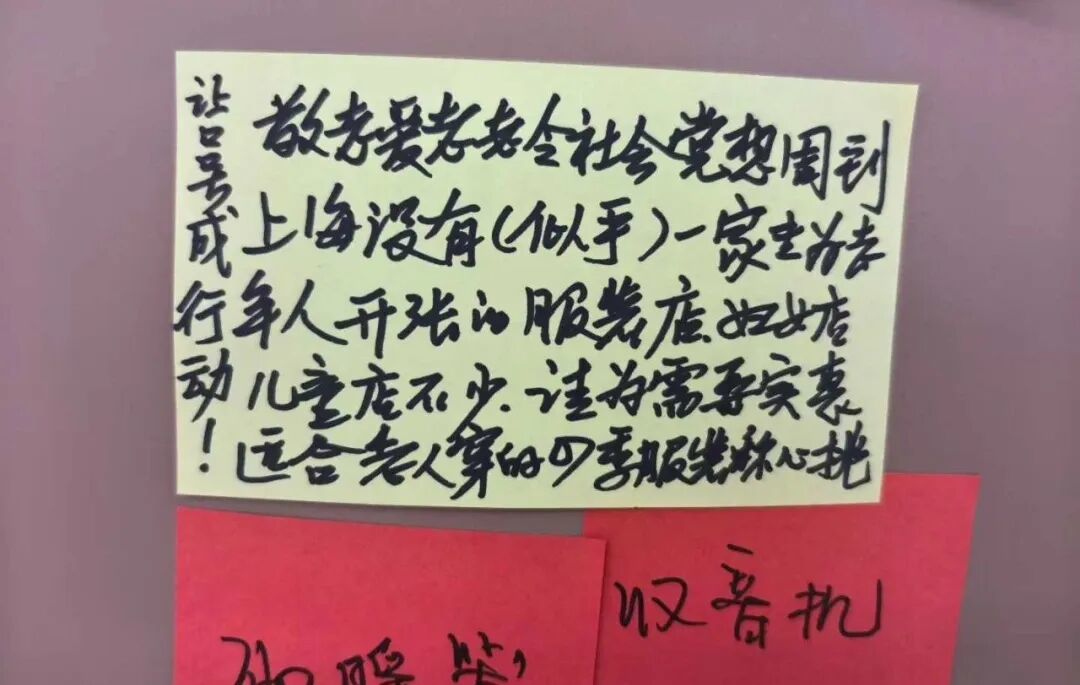 让口号成行动!
敬老爱老老令社会党想周到
上海没有(似乎)一家专为老
年人开张的服装店、妇女店
儿童店不少、请为需要实惠
适合老人穿的四季服装称心挑
收音机